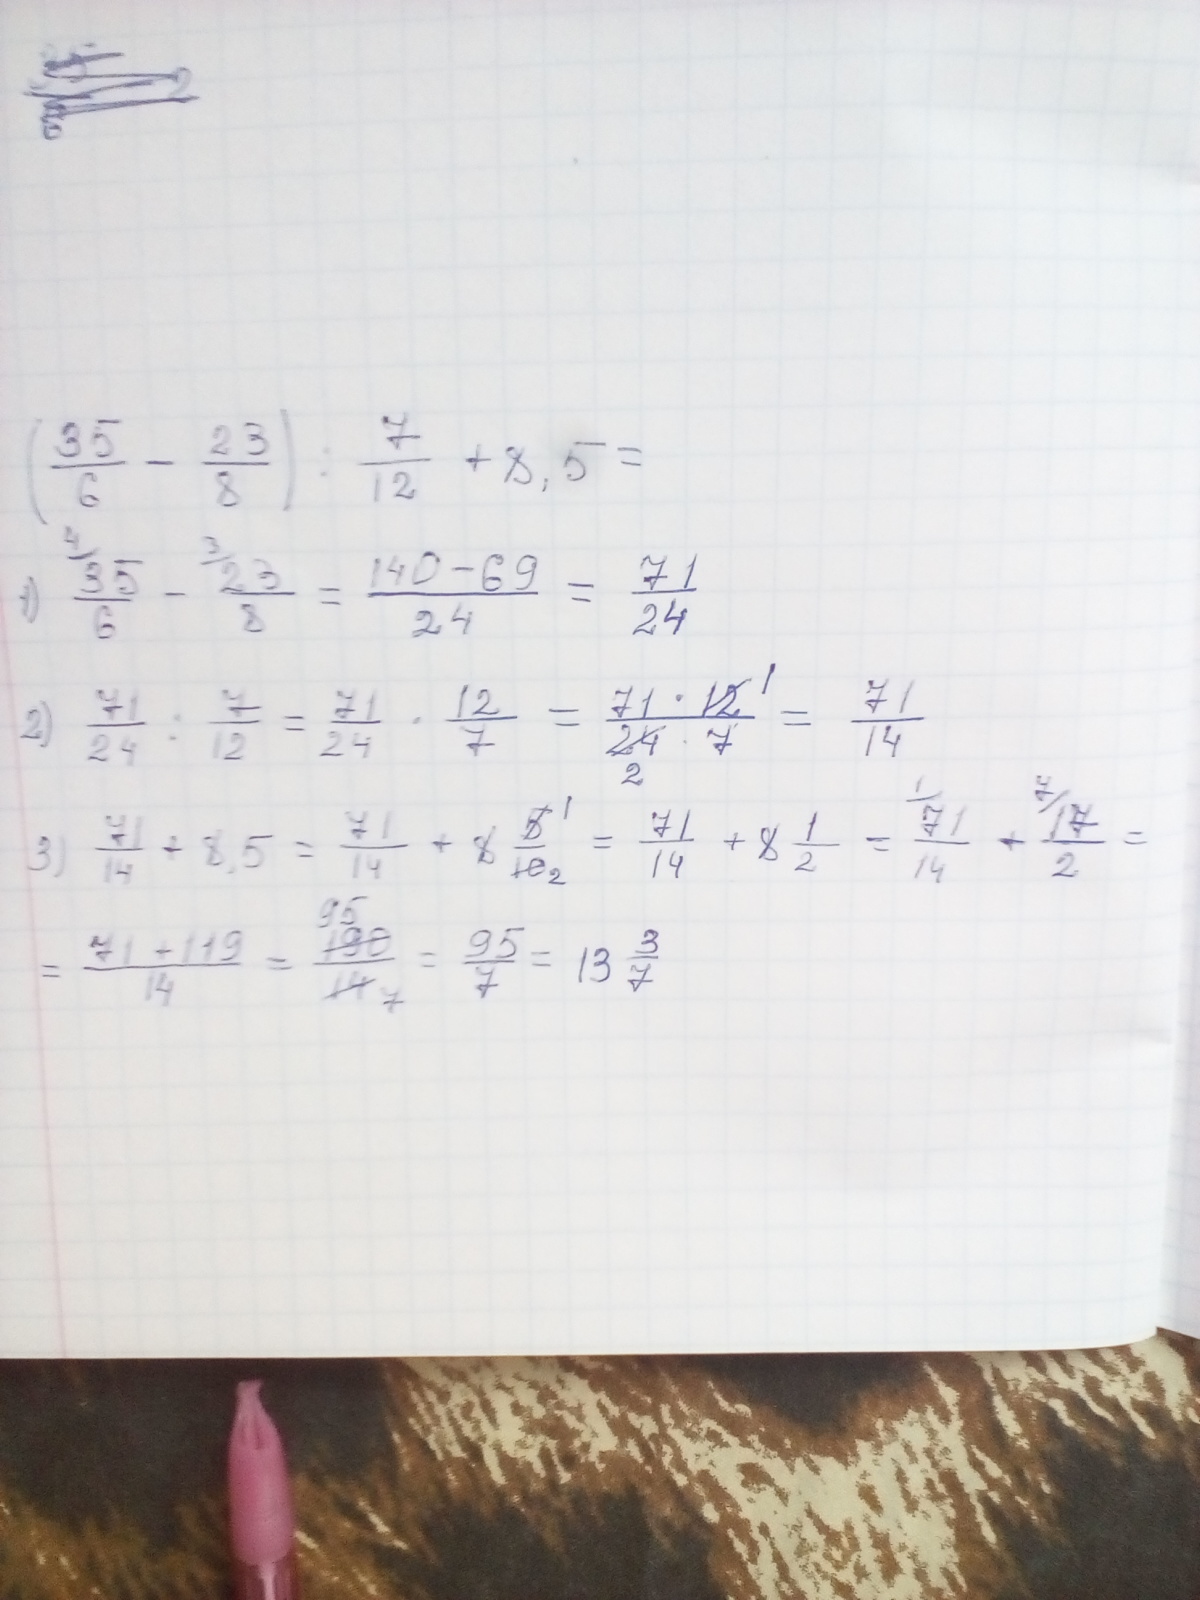 (35/6 - 23/8) : 7/12 + 8,5 =
1) 4/ 35/6 - 3/ 23/8 = 140-69/24 = 71/24
2) 71/24 : 7/12 = 71/24 · 12/7 = 71 · 12 1/24 2 · 7 = 71/14
3) 71/14 + 8,5 = 71/14 + 8 5 1/10 2 = 71/14 + 8 1/2 = 1/ 71/14 + 7/ 17/2 =
= 71+119/14 = 95 190/14 7 = 95/7 = 13 3/7